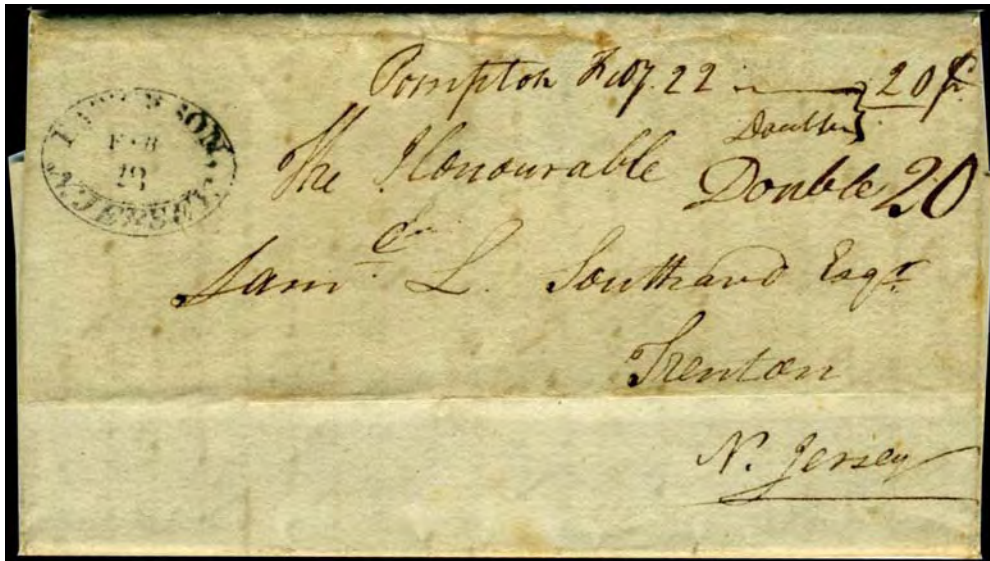 Pompton Feby. 22 — 20 pd.
Double
The Honourable Double 20
Saml. L. Southard Esqr.
Trenton
N. Jersey
FEB
N. JERSEY.